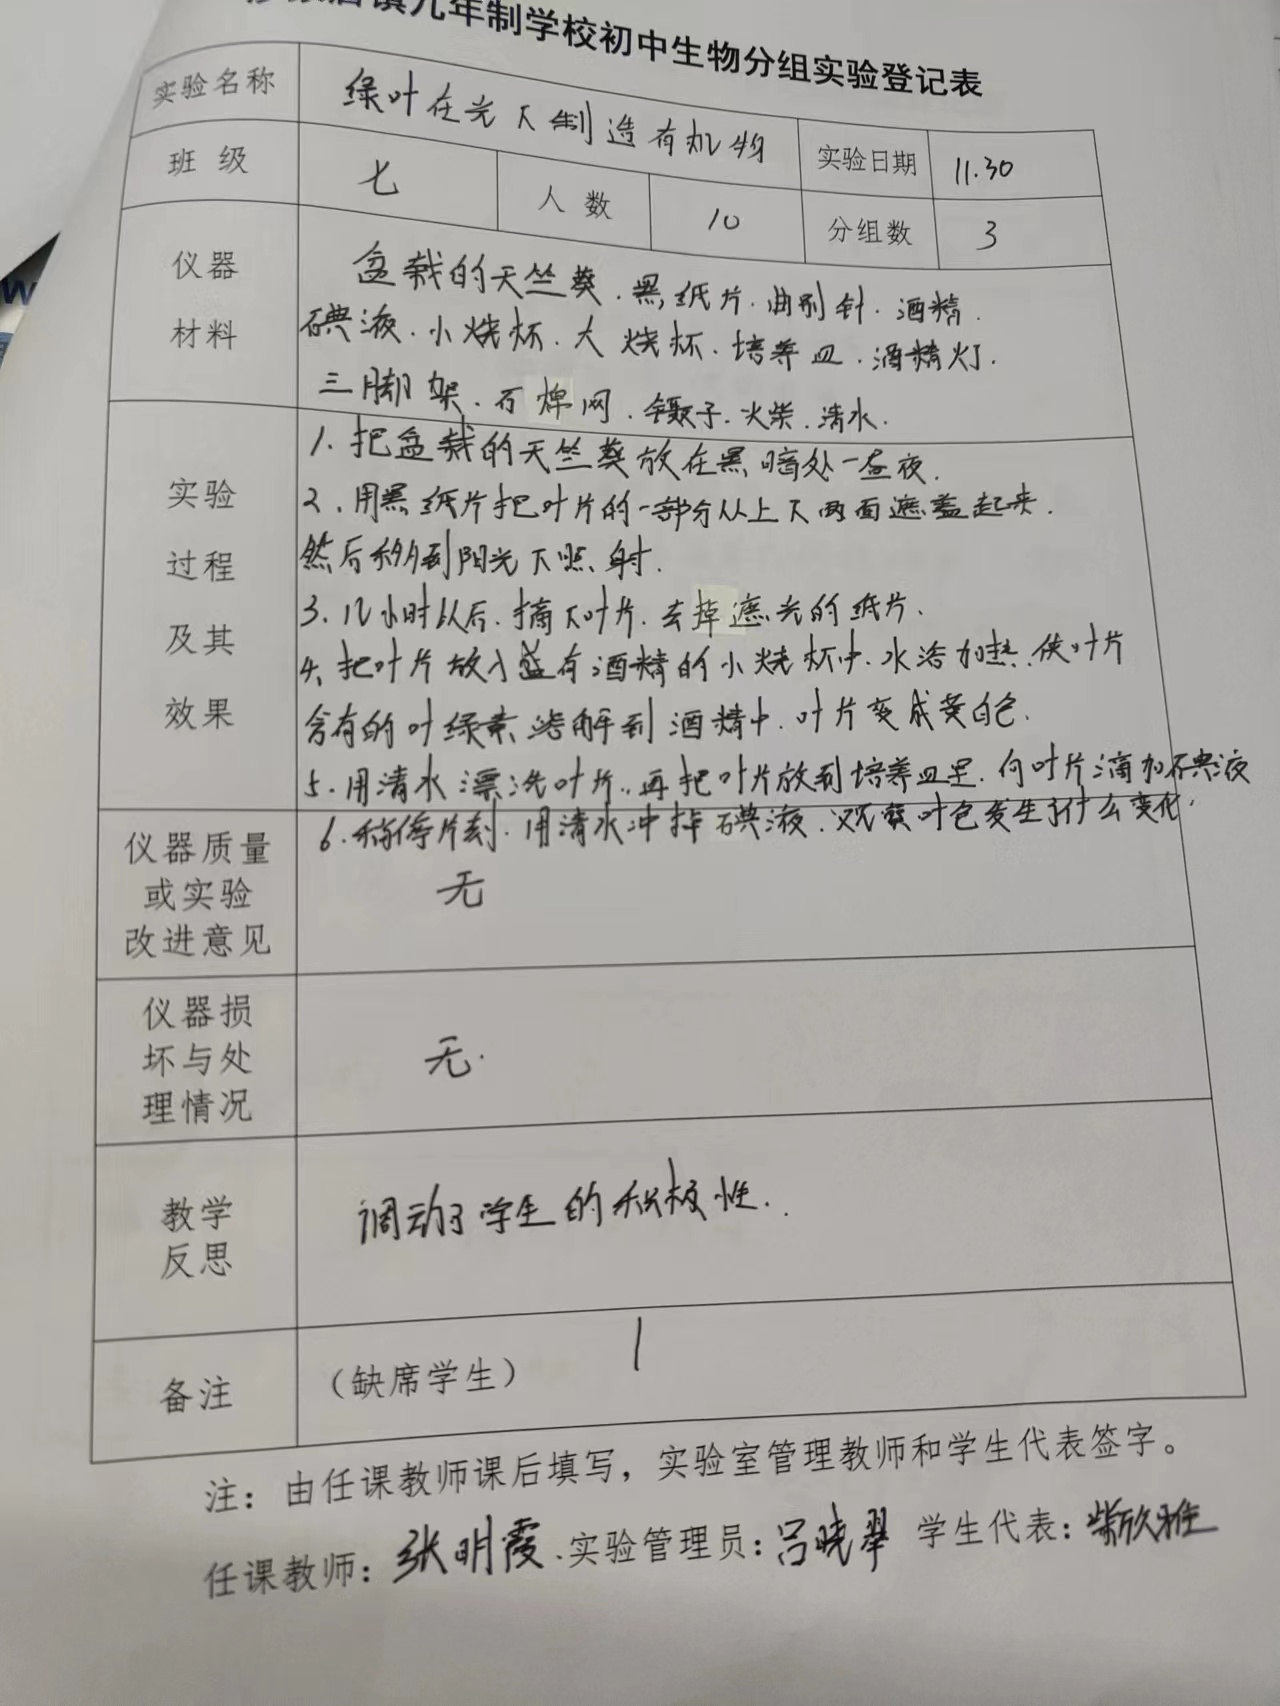 镇九年制学校初中生物分组实验登记表
实验名称 绿叶在光下制造有机物 实验日期 11.30
班级 七 人数 10 分组数 3
仪器 盆栽的天竺葵.黑纸片.曲别针.酒精.
材料 碘液.小烧杯.大烧杯.培养皿.酒精灯.
三脚架.石棉网.镊子.火柴.清水.
1.把盆栽的天竺葵放在黑暗处一昼夜.
实验 2.用黑纸片把叶片的一部分从上下两面遮盖起来.
过程 然后移到阳光下照射.
3.几小时以后.摘下叶片.去掉遮光的纸片.
及其 4、把叶片放入盛有酒精的小烧杯中.水浴加热.使叶片
效果 含有的叶绿素溶解到酒精中.叶片变成黄白色.
5.用清水漂洗叶片.再把叶片放到培养皿里.向叶片滴加碘液
6.稍停片刻.用清水冲掉碘液.观察叶色发生了什么变化.
仪器质量
或实验 无
改进意见
仪器损
坏与处 无.
理情况
教学 调动了学生的积极性..
反思
备注 (缺席学生)
注：由任课教师课后填写，实验室管理教师和学生代表签字。
任课教师：张明霞.实验管理员：吕晓翠 学生代表：欣雅